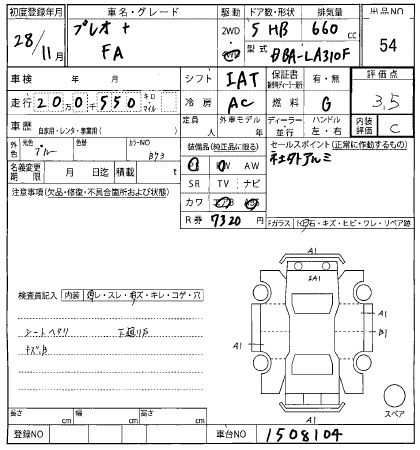 初度登録年月 車名・グレード 駆動 ドア数・形状 排気量 出品NO
28/11月 プレオ+ FA 2WD 4WD 5 HB 660cc 54
型式 DBA-LA310F
車検 年 月 シフト IAT 保証書 有・無 評価点
走行 20万0千550 キロ・マイル 冷房 AC 燃料 G 3,5
車歴 自家用・レンタ・事業用( ) 定員 人 外車モデル 年 ディーラー・並行 ハンドル 左・右 内装評価 C
外色 元色 ブルー 色替 カラーNO B73
装備品(純正品に限る) セールスポイント(正常に作動するもの)
名義変更期限 月 日迄 積載 t
PS PW AW 社外アルミ
SR TV ナビ
注意事項(欠品・修復・不具合箇所および状態)
カワ エアB ABS
R券 7320円
Fガラス 飛石・キズ・ヒビ・ワレ・リペア跡
A1
2A1
検査員記入 内装 汚レ・スレ・キズ・キレ・コゲ・穴
シートヘタリ 下廻りS
キズ、凹
A1
A1
B1
A1
スペア
長さ cm 幅 cm 高さ cm
登録NO 車台NO 1508104